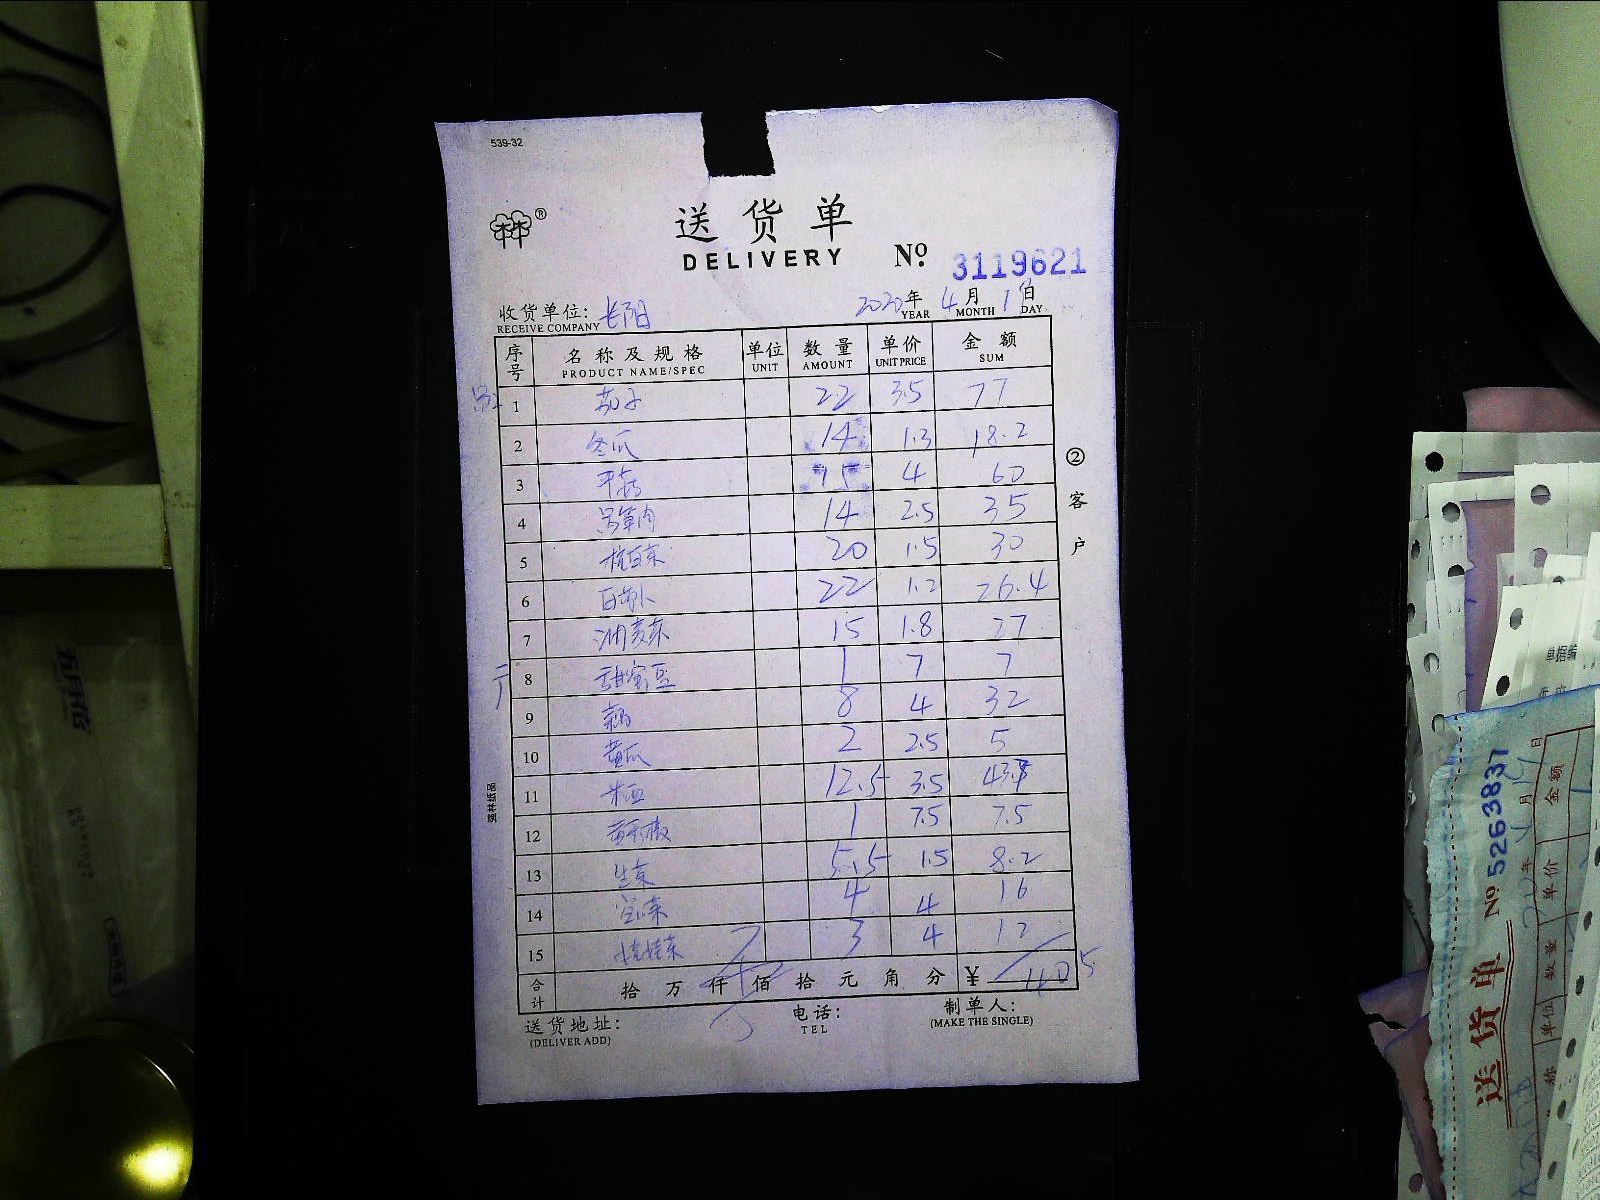 539-32
送货单
DELIVERY
№ 3119621
收货单位: 长阳
RECEIVE COMPANY
2020年 4月 1日
YEAR MONTH DAY
序号 名称及规格 单位 数量 单价 金额
PRODUCT NAME/SPEC UNIT AMOUNT UNIT PRICE SUM
1 茄子 22 3.5 77
2 冬瓜 14 1.3 18.2
3 平菇 15 4 60
4 14 2.5 35
5 杭白菜 20 1.5 30
6 白萝卜 22 1.2 26.4
7 油麦菜 15 1.8 27
8 甜蜜豆 1 7 7
9 8 4 32
10 黄瓜 2 2.5 5
11 12.5 3.5 43.8
12 1 7.5 7.5
13 生菜 5.5 1.5 8.2
14 4 4 16
15 娃娃菜 3 4 12
合计 拾 万 仟 佰 拾 元 角 分 ¥ 405
送货地址:
(DELIVER ADD)
电话:
TEL
制单人:
(MAKE THE SINGLE)
②客户
强林纸品
五月花
单据编
送货单 № 5263837
金额
单价
数量
单位